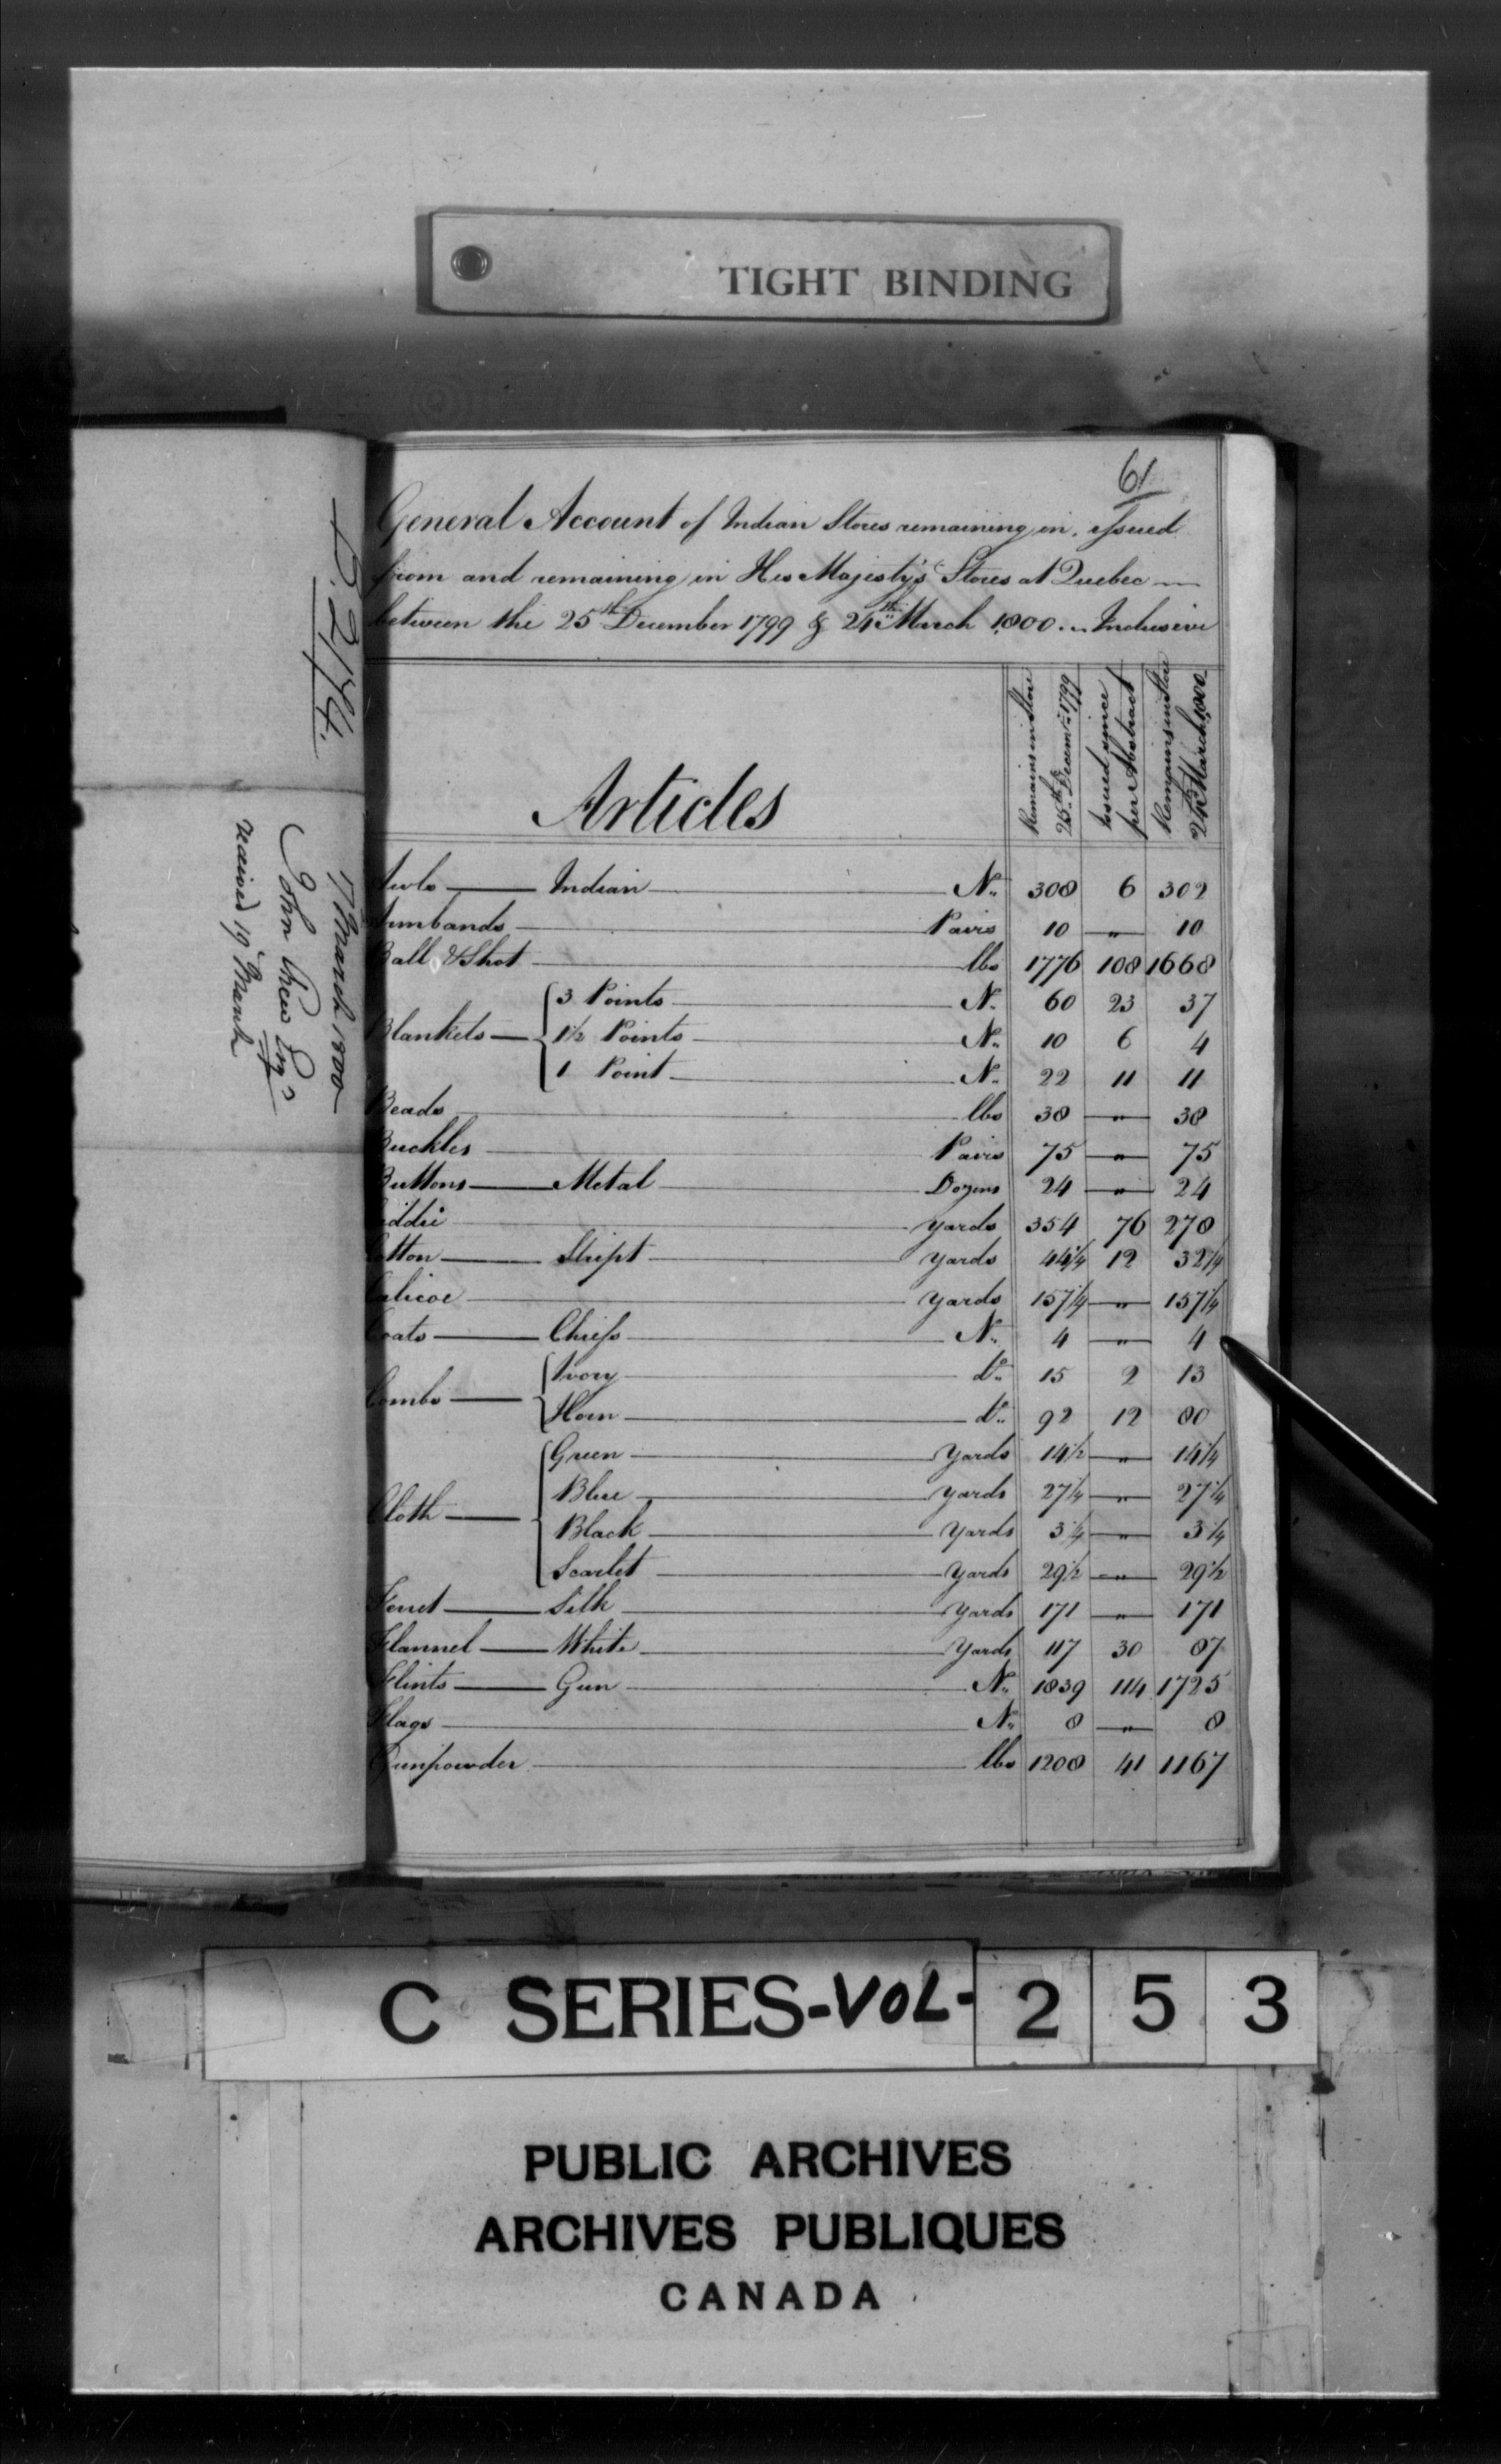 TIGHT BINDING
61
General Account of Indian Stores remaining in, issued
from and remaining in His Majesty's Stores at Quebec
between the 25th December 1799 & 24th March 1800 .. Inclusive
Articles
Remains in Store 25th Decemr 1799
Issued since per Abstract
Remains in Store 24th March 1800
Awls — Indian — No. 308 6 302
Armbands — Pairs 10 — " — 10
Ball & Shot — lbs 1776 108 1668
Blankets — { 3 Points — No. 60 23 37
1½ Points — No. 10 6 4
1 Point — No. 22 11 11
Beads — lbs 38 — " — 38
Buckles — Pairs 75 — " — 75
Buttons — Metal — Dozens 24 — " — 24
yards 354 76 278
Cotton — Stript — yards 44¼ 12 32¼
Calicoe — yards 157¼ — " — 157¼
Coats — Chiefs — No. 4 — " — 4
Combs — { Ivory — do. 15 2 13
Horn — do. 92 12 80
Cloth — { Green — yards 14½ — " —
Blue — yards 27¼ — " — 27¼
Black — yards 3¼ — " — 3¼
Scarlet — yards 29½ — " — 29½
Ferret — Silk — yards 171 — " — 171
Flannel — White — yards 117 30 87
Flints — Gun — No. 1839 114 1725
Flags — No. 8 — " — 8
Gunpowder — lbs 1208 41 1167
March 1800
John Chew Esqr
received 19 March
C SERIES-VOL- 2 5 3
PUBLIC ARCHIVES
ARCHIVES PUBLIQUES
CANADA